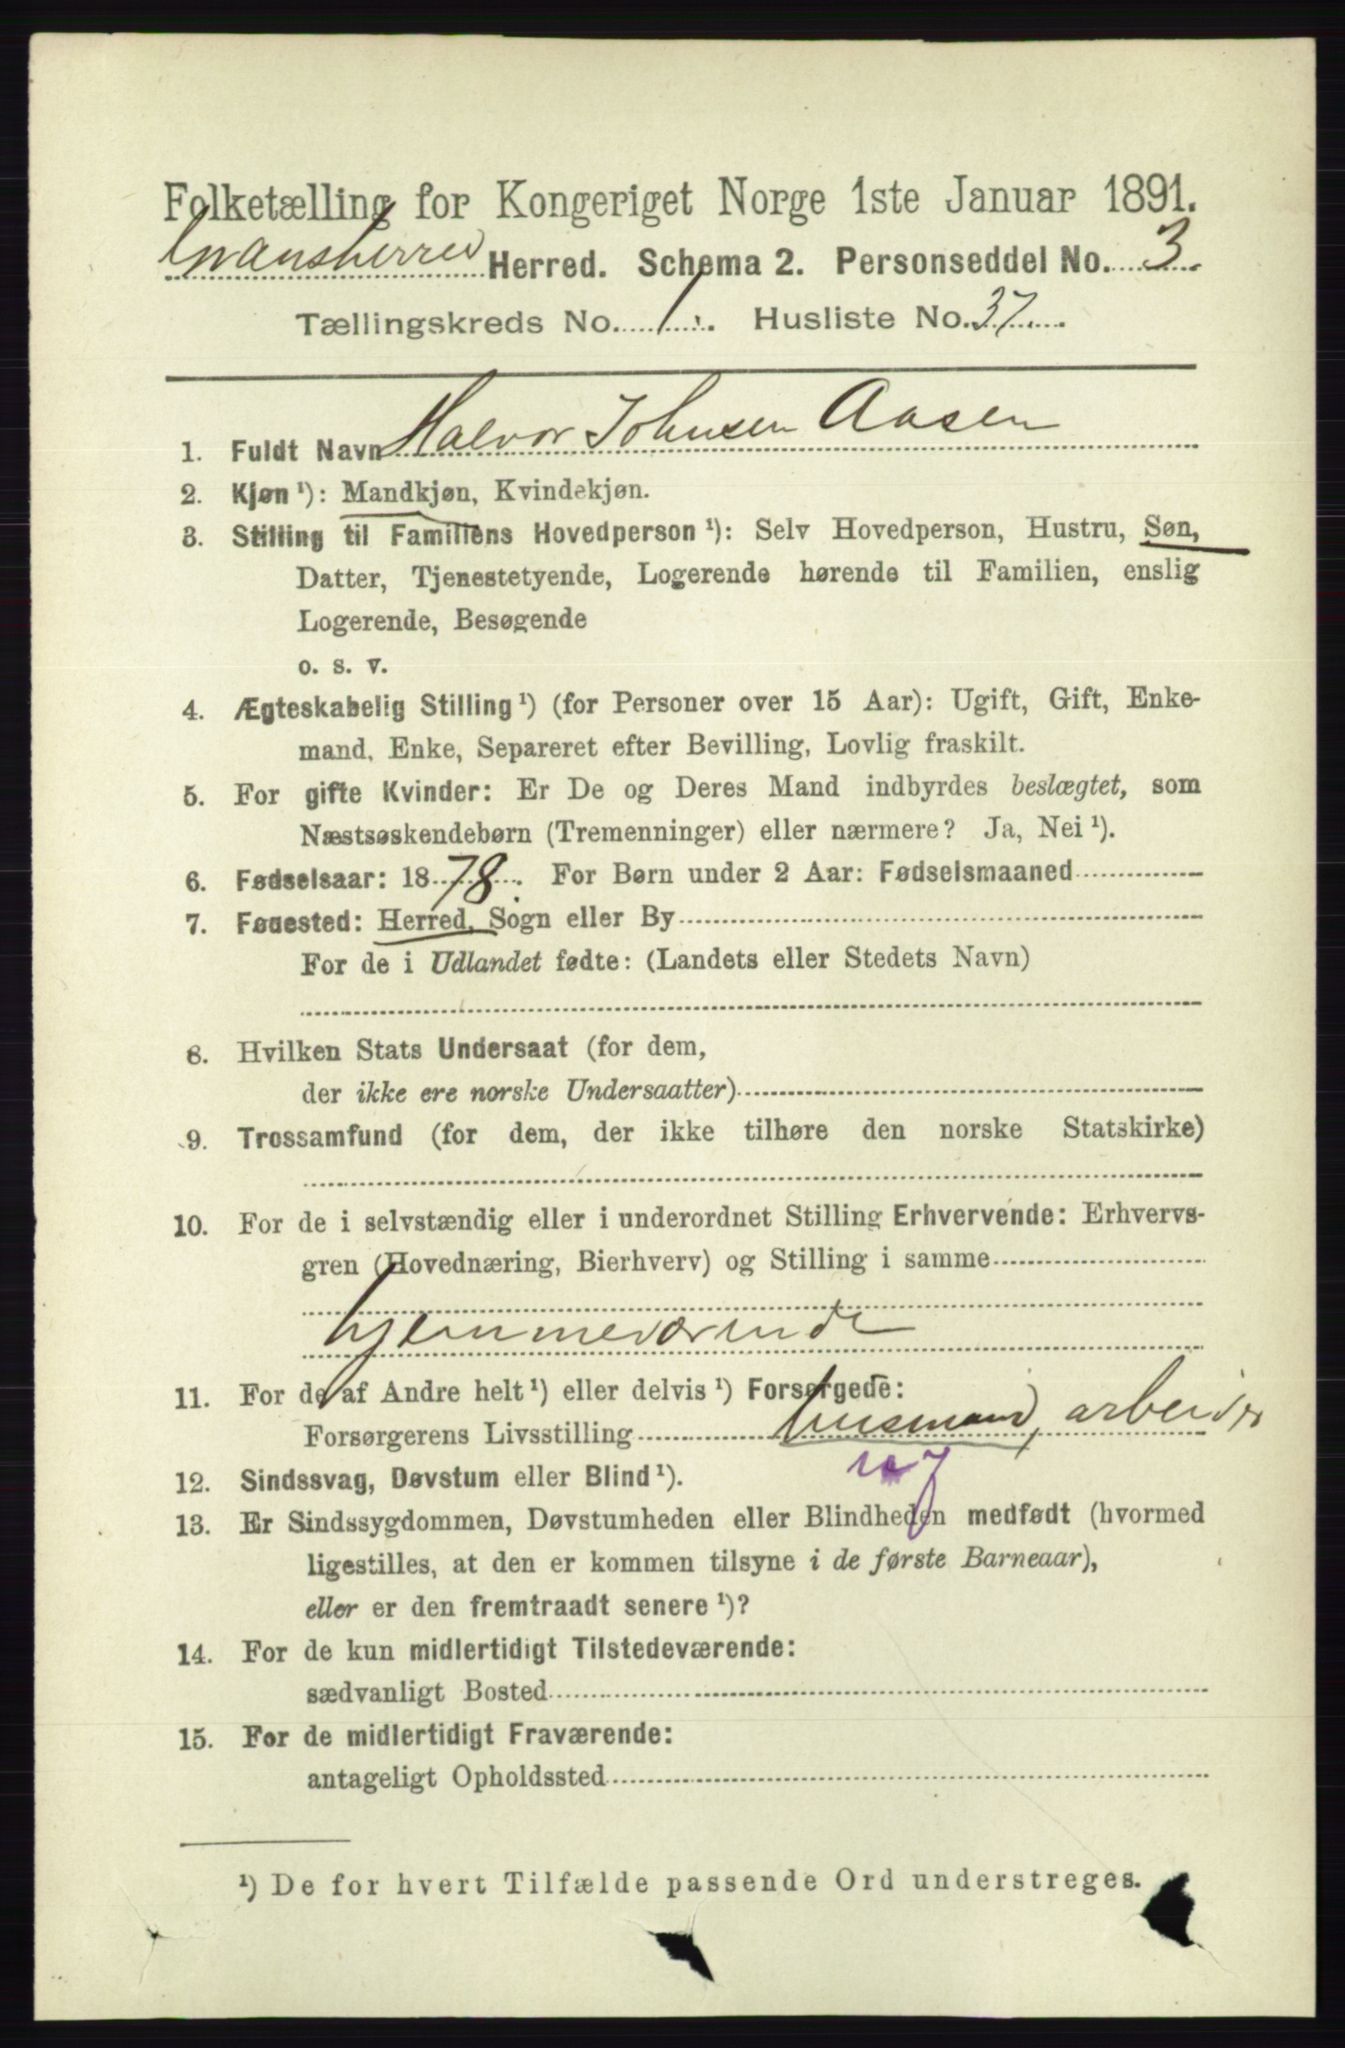 Folketælling for Kongeriget Norge 1ste Januar 1891.
Gransherred Herred. Schema 2. Personseddel No. 3
Tællingskreds No. 1. Husliste No. 37
1. Fuldt Navn Halvor Johnsen Aasen
2. Kjøn ¹): Mandkjøn, Kvindekjøn.
3. Stilling til Familiens Hovedperson ¹): Selv Hovedperson, Hustru, Søn,
Datter, Tjenestetyende, Logerende hørende til Familien, enslig
Logerende, Besøgende
o. s. v.
4. Ægteskabelig Stilling ¹) (for Personer over 15 Aar): Ugift, Gift, Enke-
mand, Enke, Separeret efter Bevilling, Lovlig fraskilt.
5. For gifte Kvinder: Er De og Deres Mand indbyrdes beslægtet, som
Næstsøskendebørn (Tremenninger) eller nærmere? Ja, Nei ¹).
6. Fødselsaar: 1878. For Børn under 2 Aar: Fødselsmaaned
7. Fødested: Herred, Sogn eller By
For de i Udlandet fødte: (Landets eller Stedets Navn)
8. Hvilken Stats Undersaat (for dem,
der ikke ere norske Undersaatter)
9. Trossamfund (for dem, der ikke tilhøre den norske Statskirke)
10. For de i selvstændig eller i underordnet Stilling Erhvervende: Erhvervs-
gren (Hovednæring, Bierhverv) og Stilling i samme
hjemmeværende
11. For de af Andre helt ¹) eller delvis ¹) Forsørgede:
Forsørgerens Livsstilling husmand, arbeider
12. Sindssvag, Døvstum eller Blind ¹).
13. Er Sindssygdommen, Døvstumheden eller Blindheden medfødt (hvormed
ligestilles, at den er kommen tilsyne i de første Barneaar),
eller er den fremtraadt senere ¹)?
14. For de kun midlertidigt Tilstedeværende:
sædvanligt Bosted
15. For de midlertidigt Fraværende:
antageligt Opholdssted
¹) De for hvert Tilfælde passende Ord understreges.